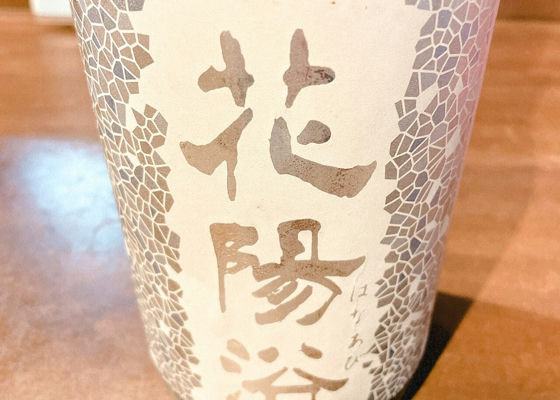 花陽浴
はなあび